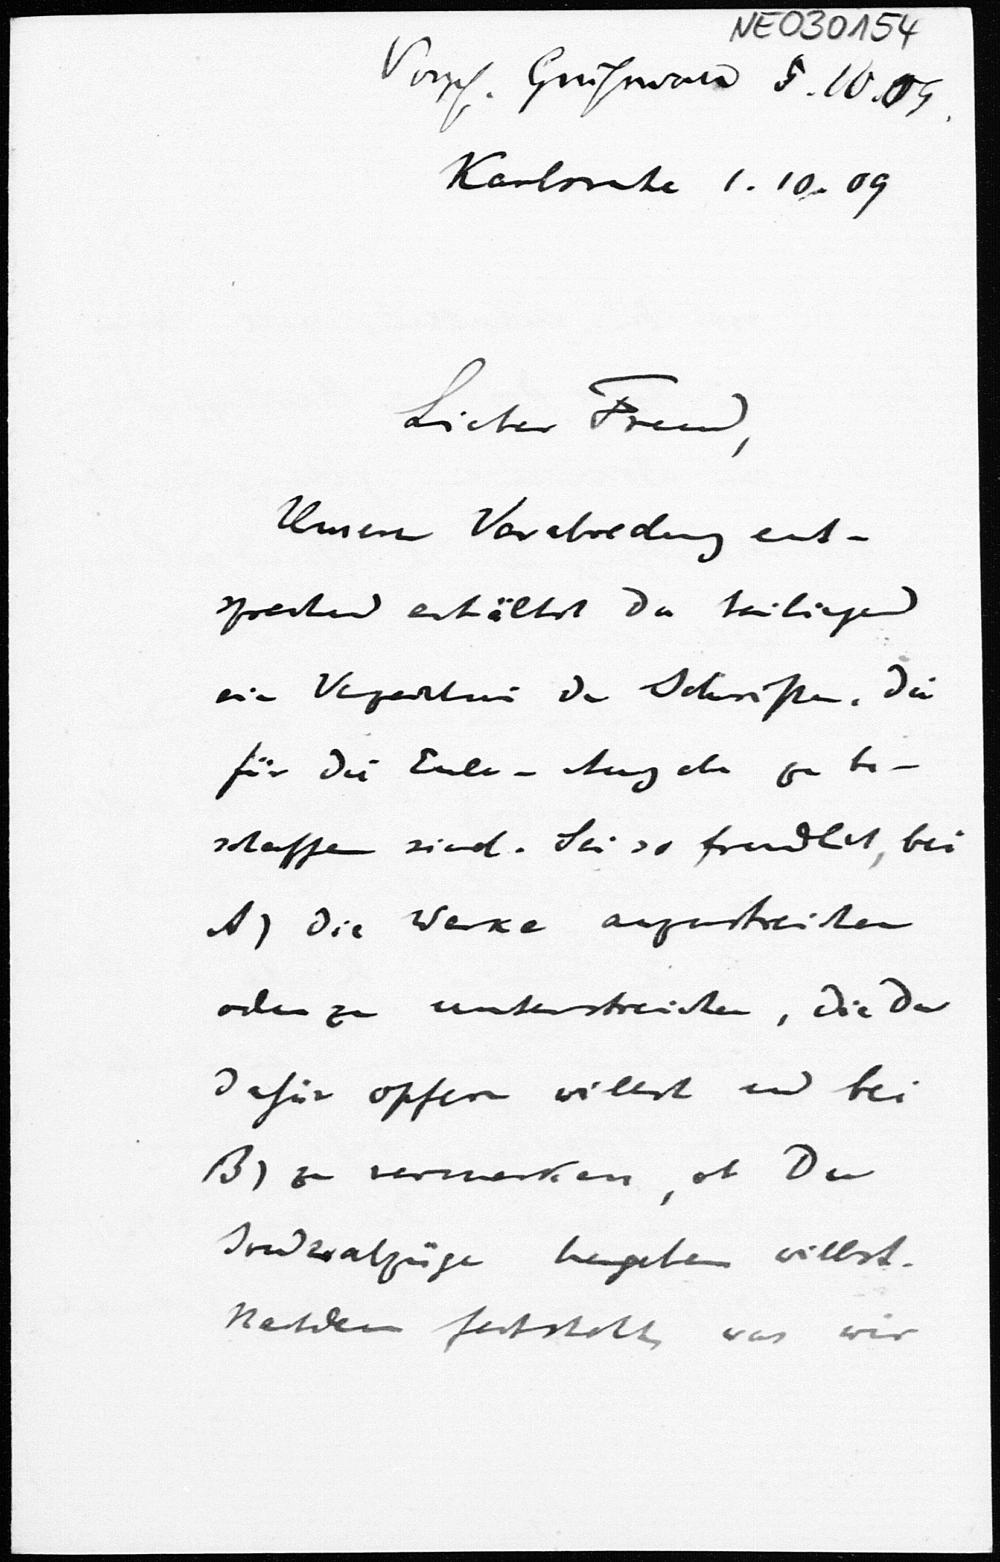 NEO30154
Greifswald 5.10.09.
Karlsruhe 1.10.09
Lieber Freund,
Unserer Verabredung ent-
sprechend erhältst Du beiliegend
ein Verzeichnis der Schriften, die
für die Euler-Ausgabe zu be-
schaffen sind. Sei so freundlich, bei
A) die Werke anzustreichen
oder zu unterstreichen, die Du
dafür opfern willst und bei
B) zu vermerken, ob Du
Sonderabzüge hergeben willst.
Nachdem feststeht, was wir